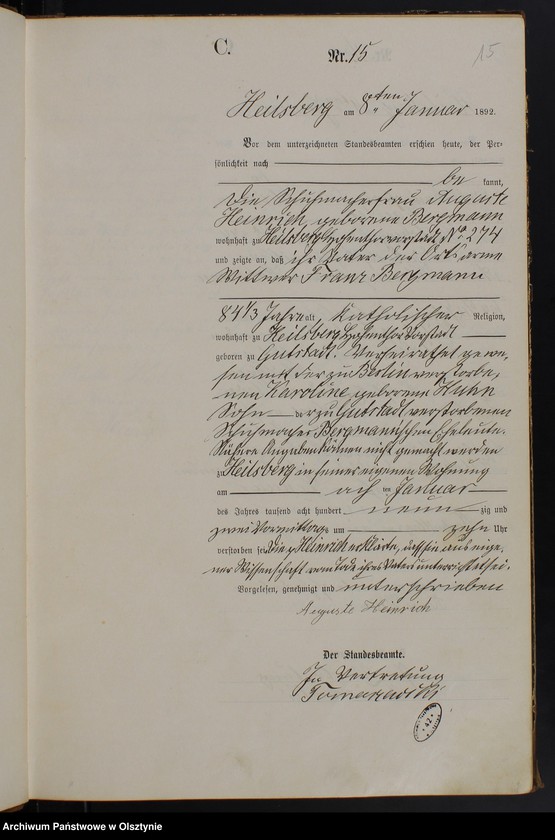 C.
Nr. 15
15
Heilsberg am 8ten Januar 1892.
Vor dem unterzeichneten Standesbeamten erschien heute, der Per-
sönlichkeit nach
be kannt,
die Schuhmacherfrau Auguste
Heinrich, geborene Bergmann
wohnhaft zu Heilsberg Hohenthorvorstadt No 274
und zeigte an, daß ihr Vater der Ortsarme
Wittwer Franz Bergmann
84 1/3 Jahre alt, Katholischer Religion,
wohnhaft zu Heilsberg Hohenthorvorstadt
geboren zu Gutstadt. Verheirathet gewe-
sen mit der zu Berlin verstorbe-
nen Karoline, geborene Huhn
Sohn der zu Gutstadt verstorbenen
Schuhmacher Bergmannschen Eheleute.
Nähere Angaben können nicht gemacht werden
zu Heilsberg in seiner eigenen Wohnung
am acht ten Januar
des Jahres tausend acht hundert neun zig und
zwei Vormittags um zehn Uhr
verstorben sei. Die p Heinrich erklärte, daß sie aus eige-
ner Wissenschaft vom Tode ihres Vaters unterrichtet sei.
Vorgelesen, genehmigt und unterschrieben
Auguste Heinrich
Der Standesbeamte.
In Vertretung
Tomaszewski
Archiwum Państwowe w Olsztynie